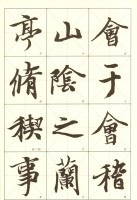 會于會稽
山陰之蘭
亭脩稧事